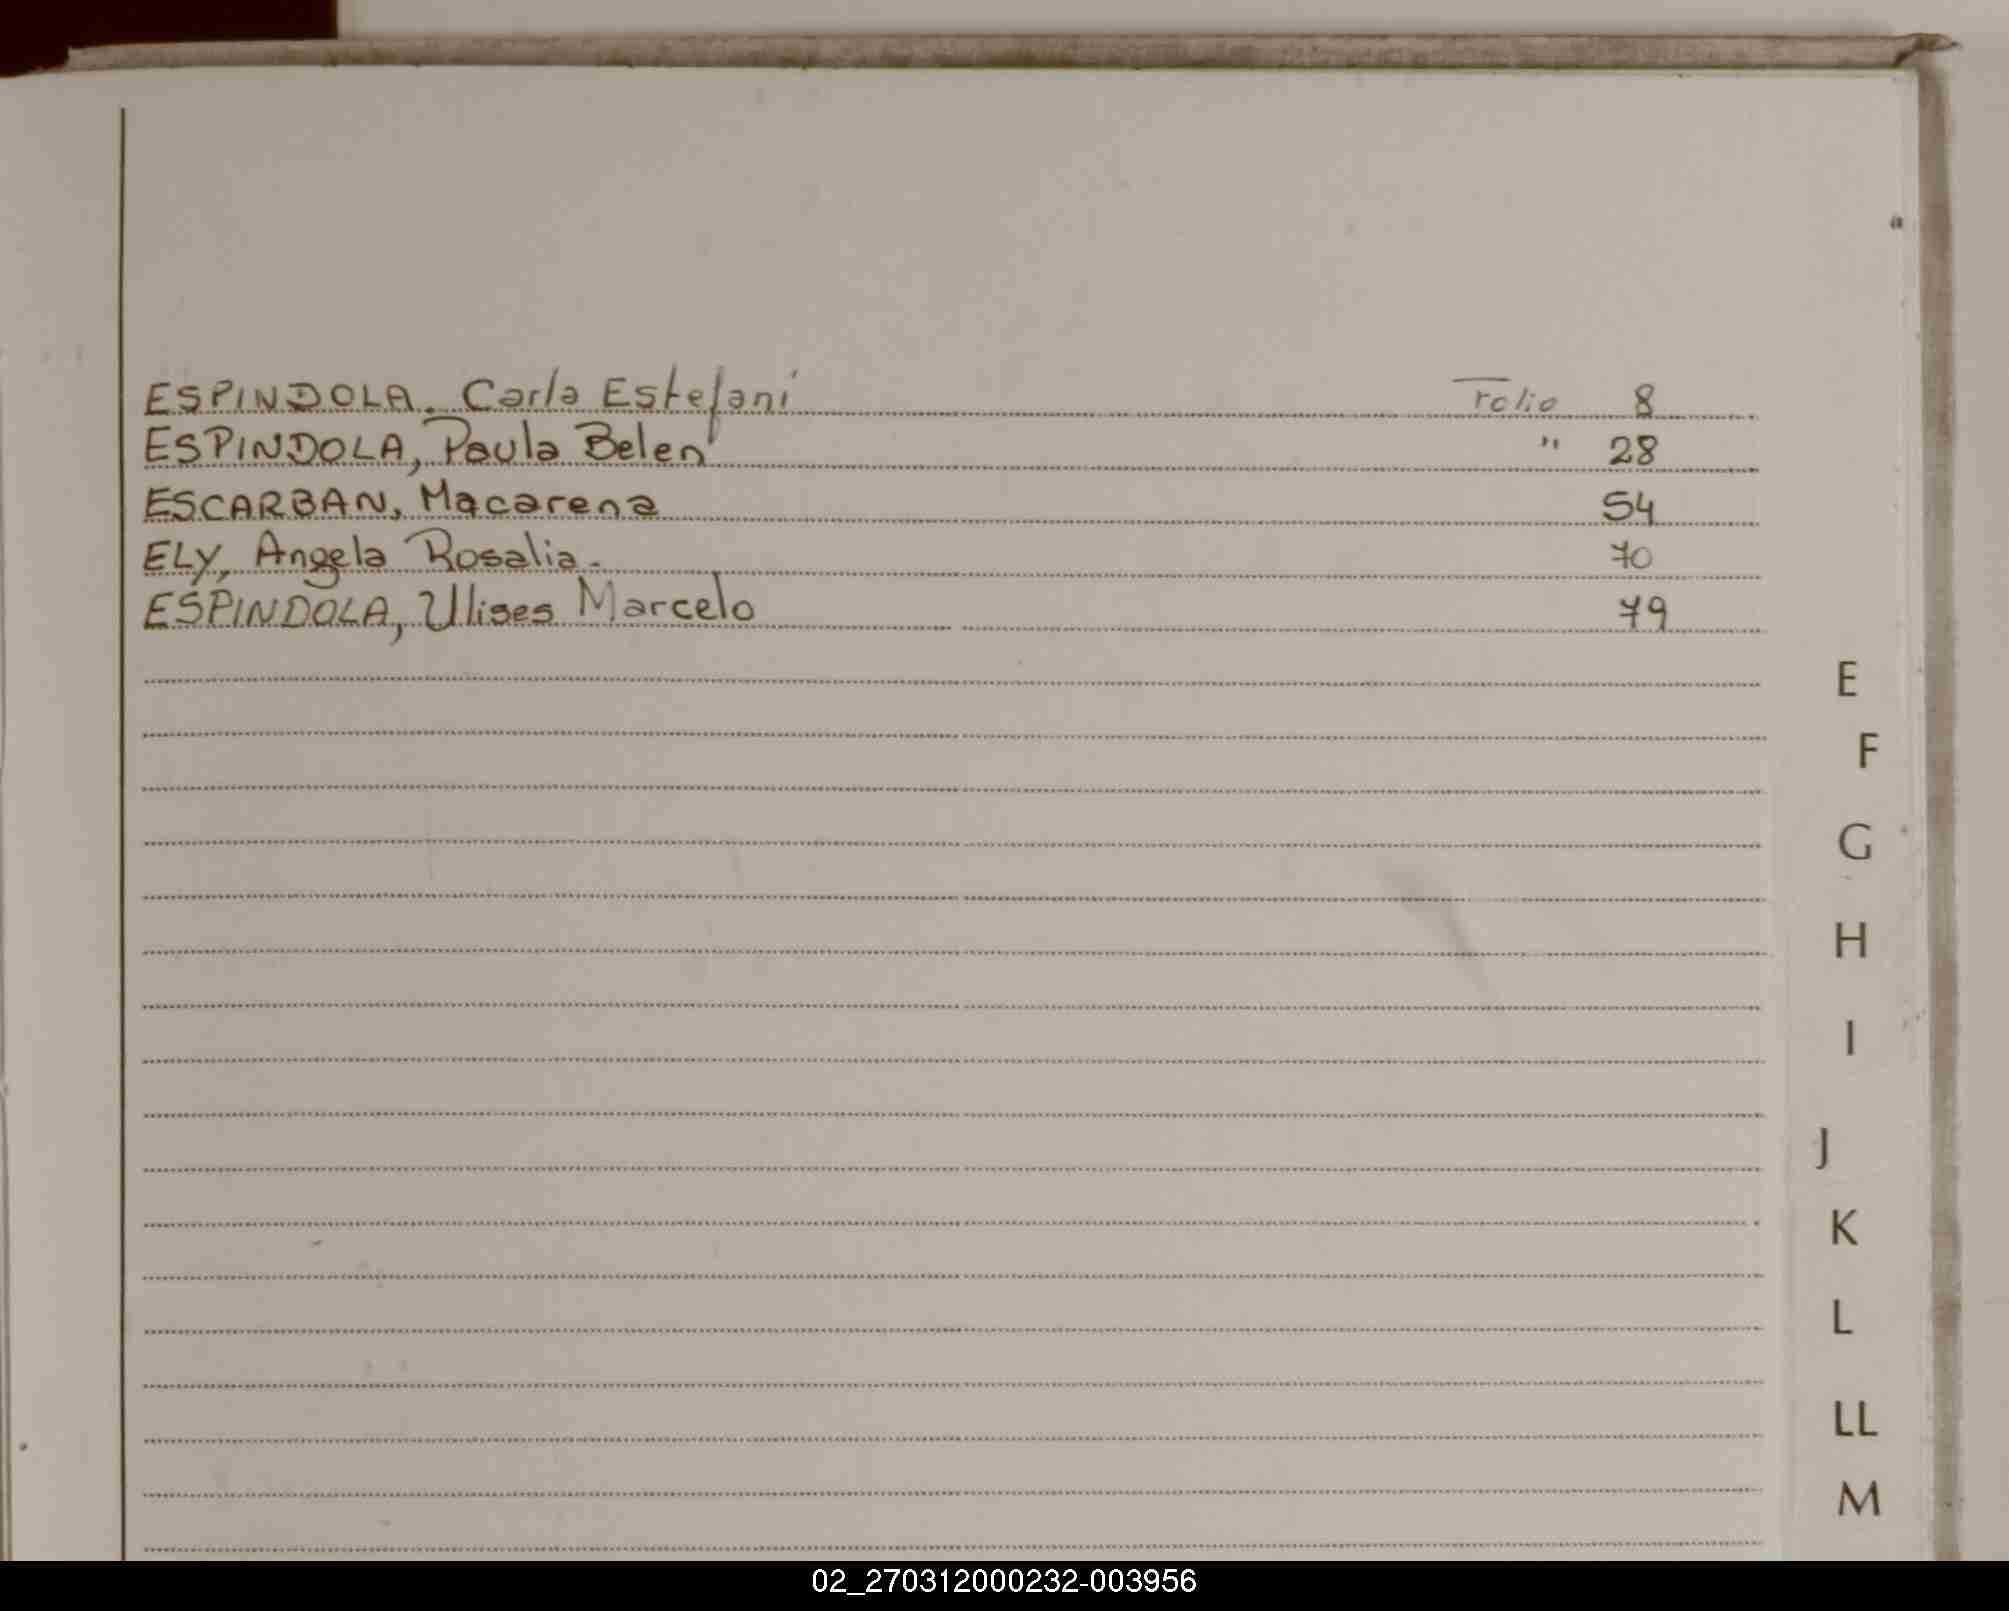 ESPINDOLA, Carla Estefani Folio 8
ESPINDOLA, Paula Belen " 28
ESCARBAN, Macarena 54
ELY, Angela Rosalia. 70
ESPINDOLA, Ulises Marcelo 79
E
F
G
H
I
J
K
L
LL
M
02_270312000232-003956